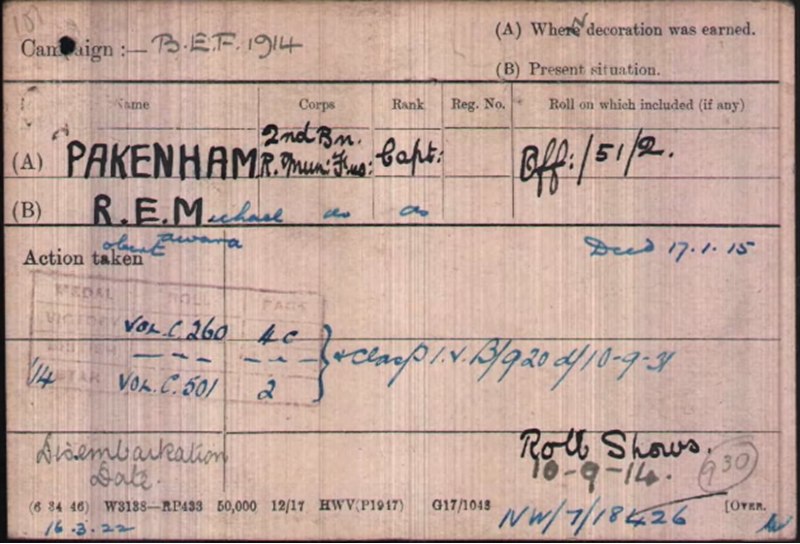 Campaign :— B.E.F. 1914
(A) Where decoration was earned.
(B) Present situation.
Name Corps Rank Reg. No. Roll on which included (if any)
(A) PAKENHAM 2nd Bn. R. Mun: Fus: Capt: Off: / 51/2.
(B) R.E.Michael do do
obert dward
Action taken Died 17.1.15
MEDAL ROLL PAGE
VICTORY VOL.C.260 4C
BRITISH — — — — — — } & Clasp I.V. B/920 d/10-9-31
14 STAR VOL.C.501 2
Disembarkation Date. Roll Shows.
10-9-14. 930
(6 34 46) W3138—RP433 50,000 12/17 HWV(P1947) G17/1043 [OVER.
16.3.22 NW/7/18426